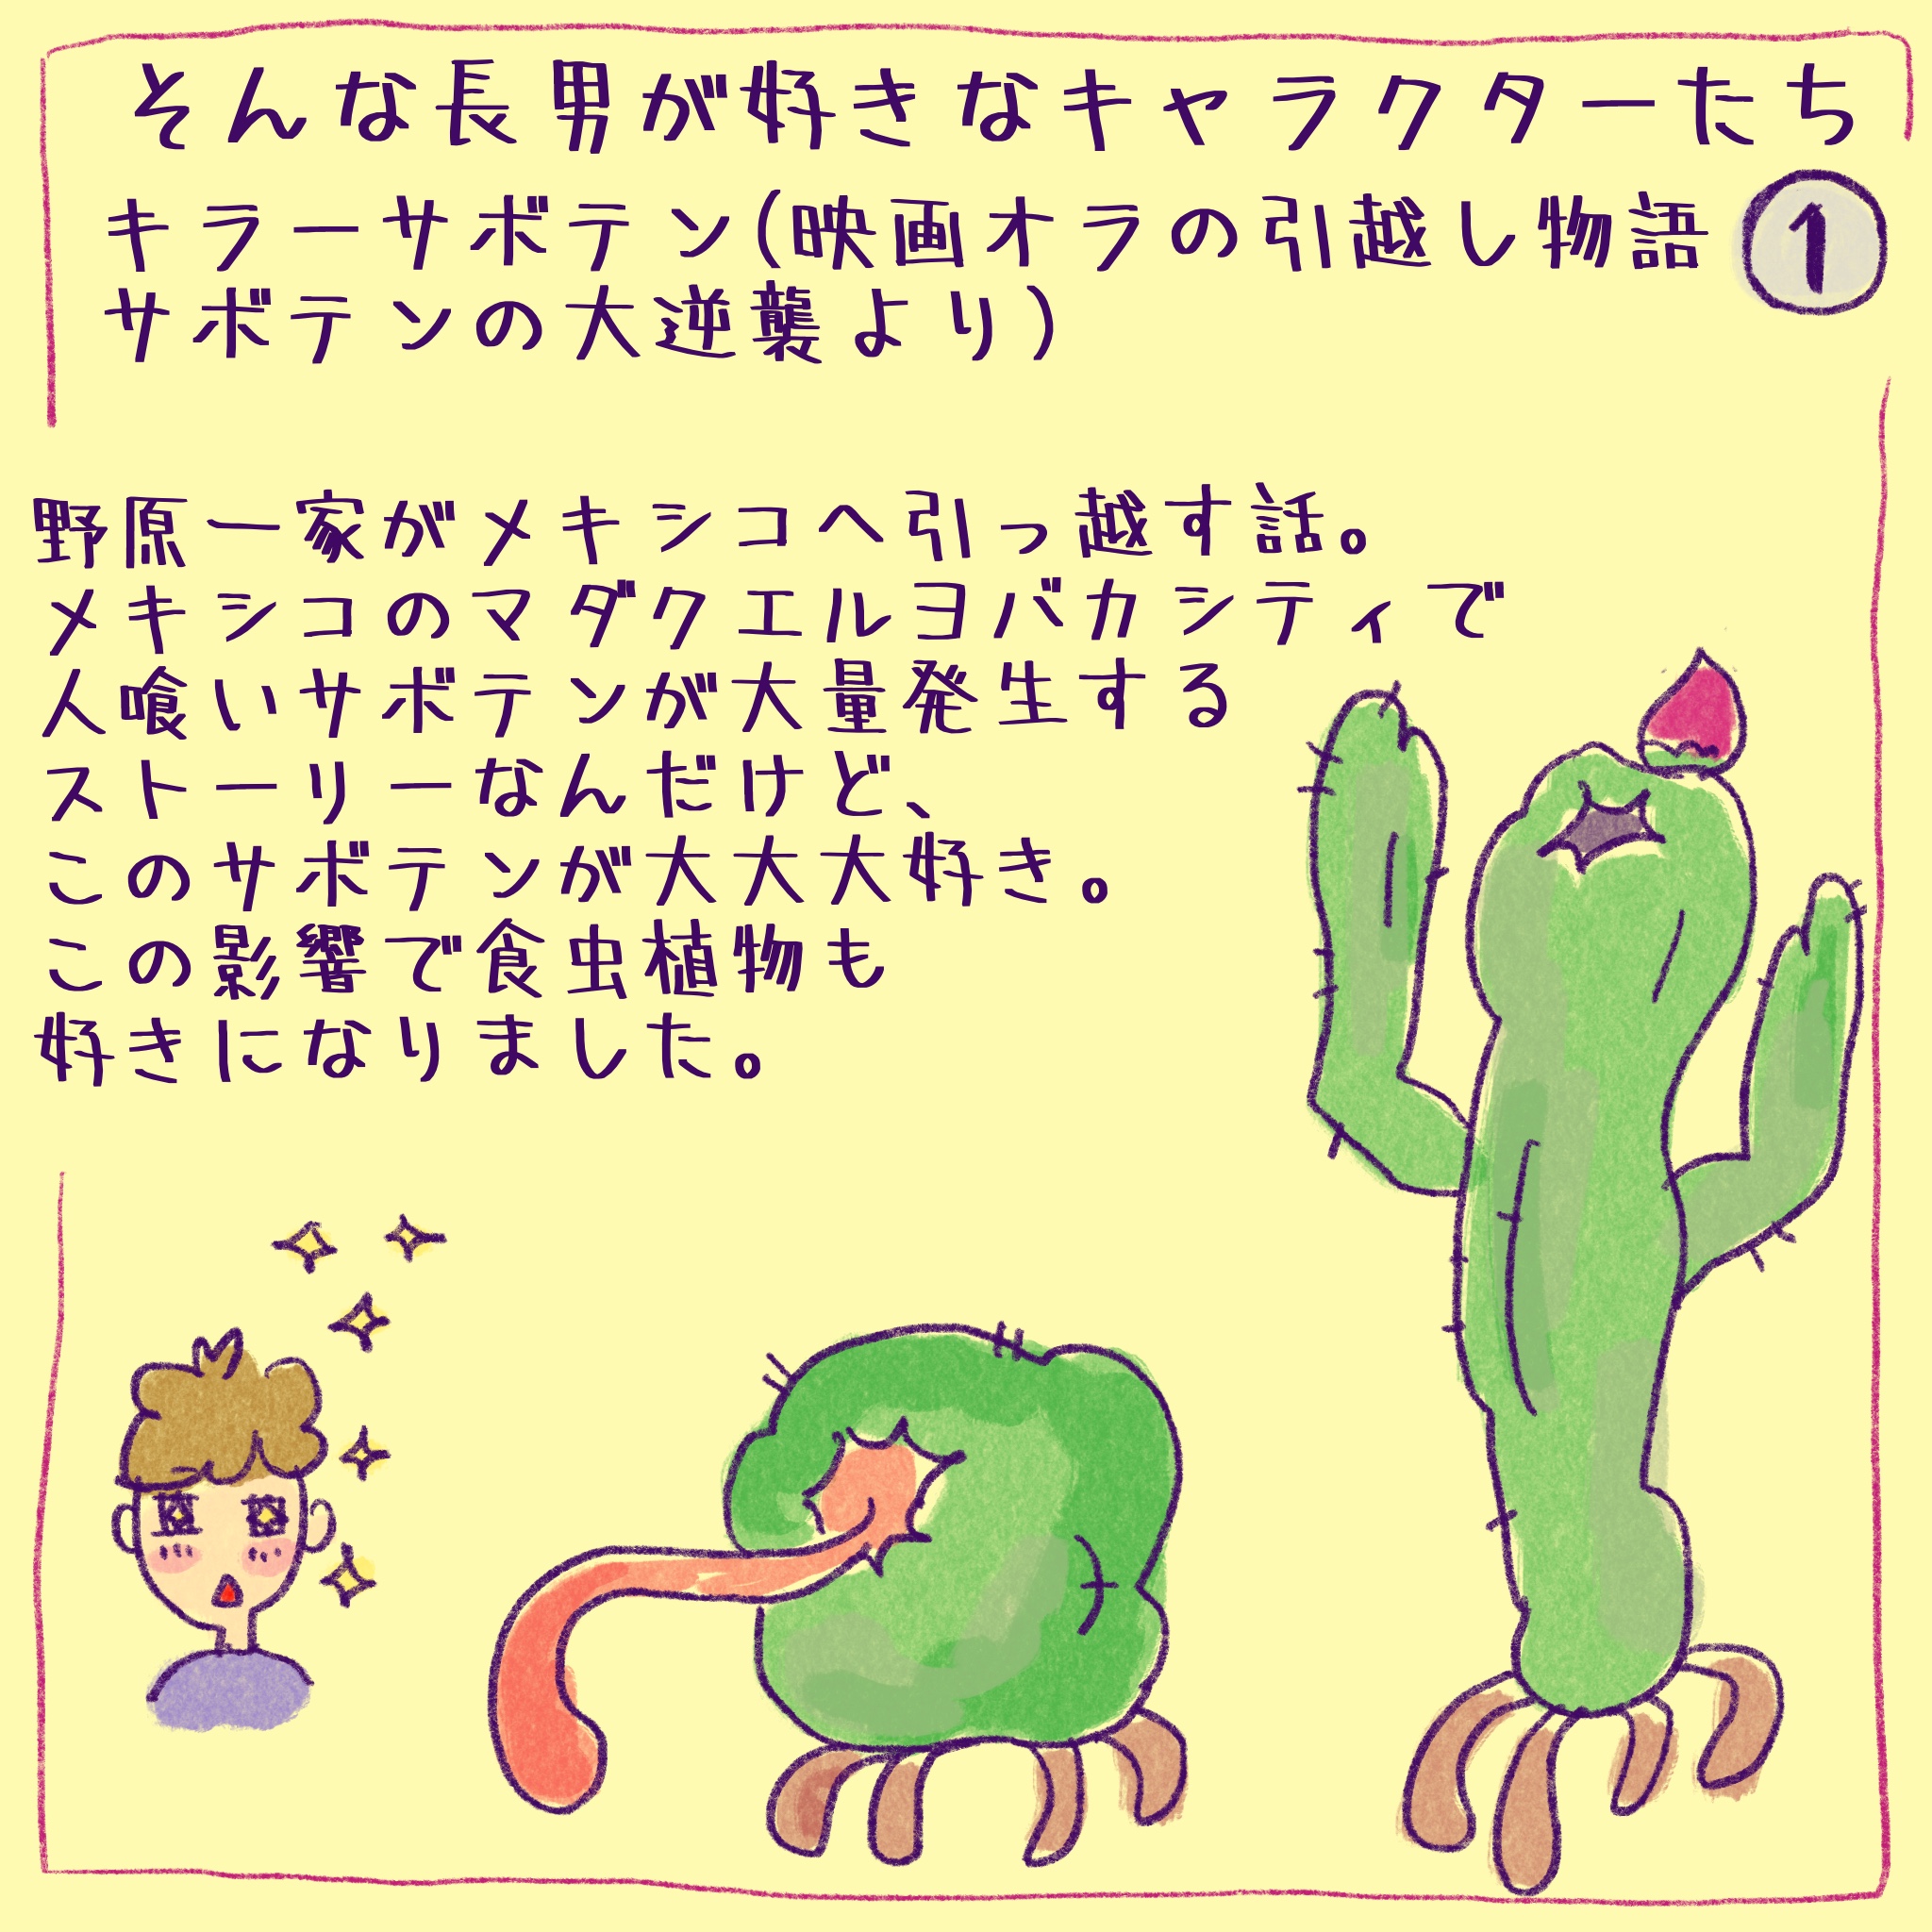 そんな長男が好きなキャラクターたち
キラーサボテン(映画オラの引越し物語
サボテンの大逆襲より)
1
野原一家がメキシコへ引っ越す話。
メキシコのマダクエルヨバカシティで
人喰いサボテンが大量発生する
ストーリーなんだけど、
このサボテンが大大大好き。
この影響で食虫植物も
好きになりました。